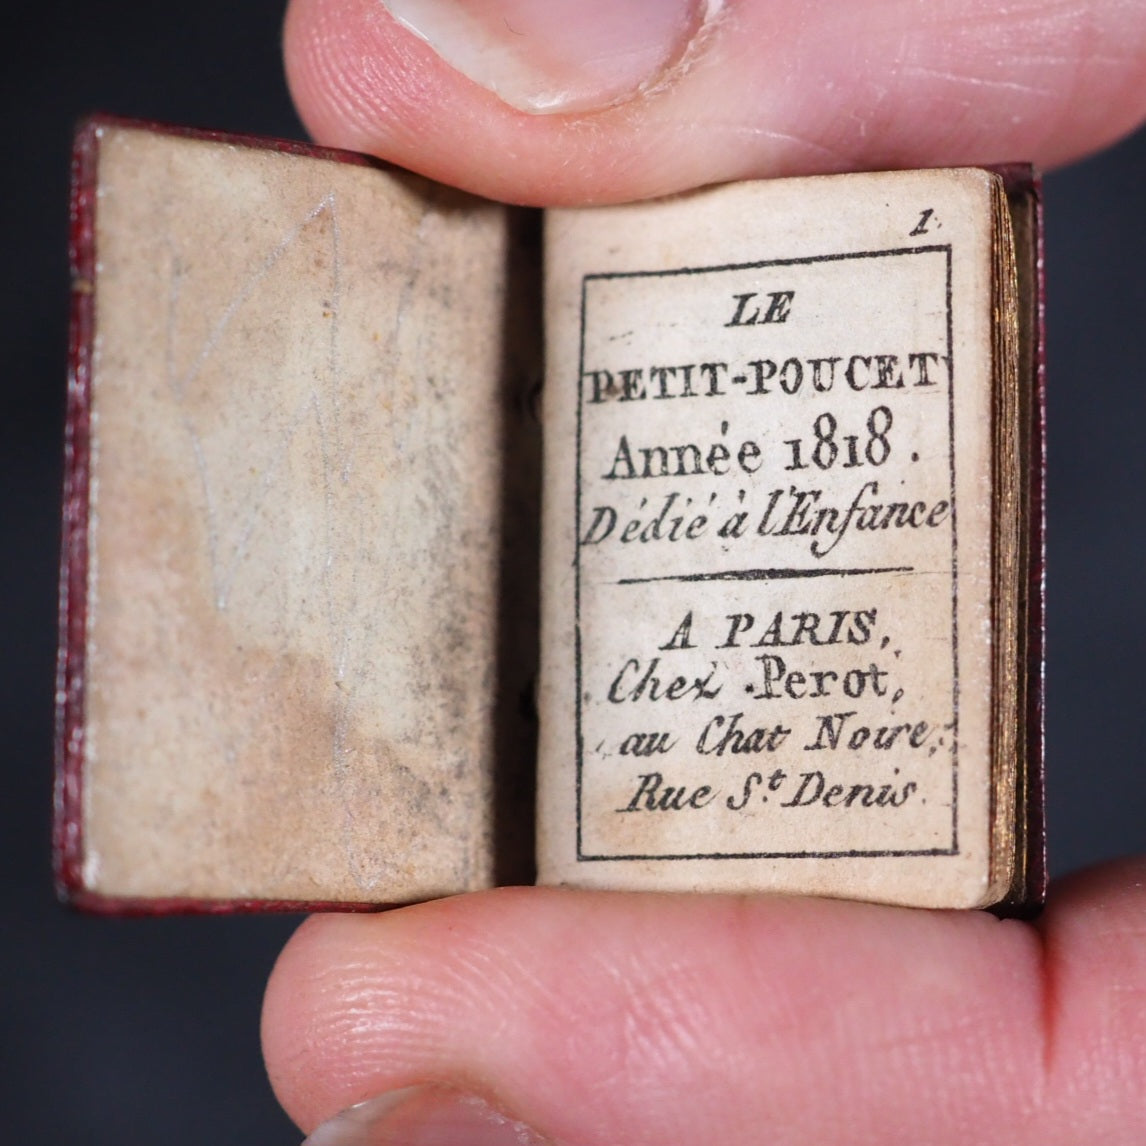 1.
LE
PETIT-POUCET
Année 1818.
Dédié à l'Enfance
A PARIS,
Chez Perot,
au Chat Noire,
Rue S.t Denis.